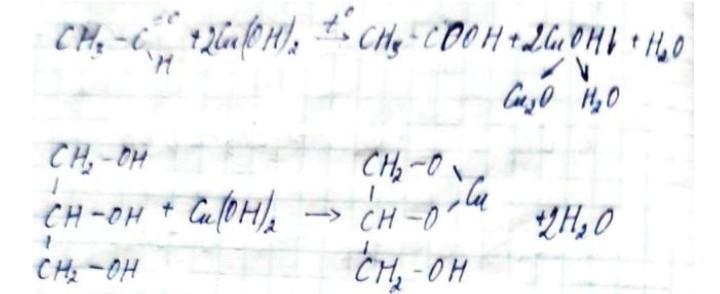 CH₃-C=O H +2Cu(OH)₂ t° → CH₃-COOH+2CuOH↓ +H₂O
Cu₂O H₂O
CH₂-OH CH₂-O
CH-OH + Cu(OH)₂ → CH-O Cu +2H₂O
CH₂-OH CH₂-OH